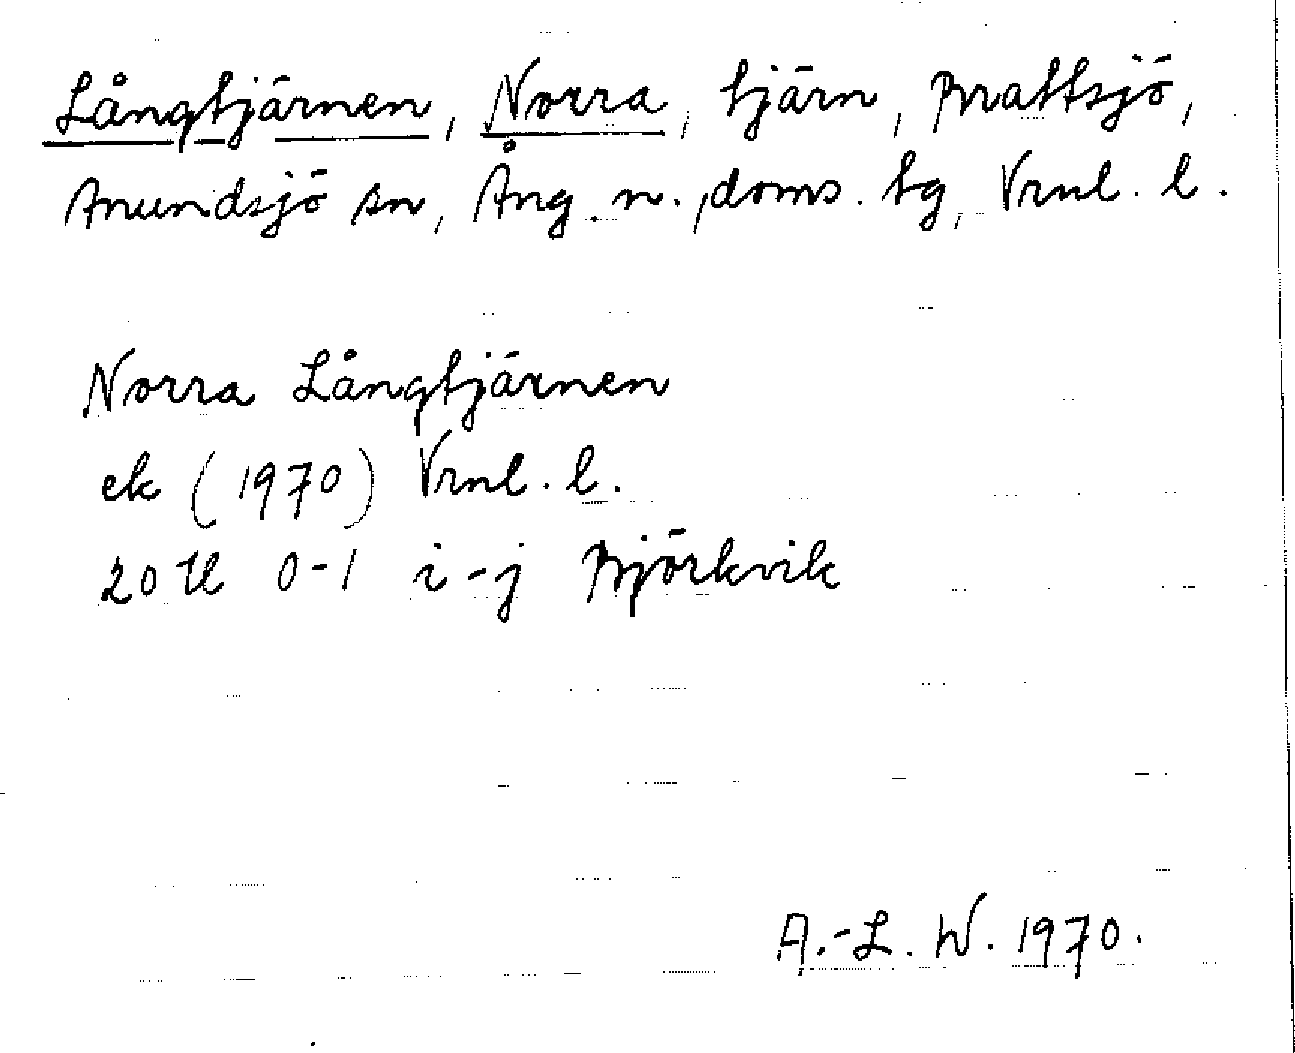 Långtjärnen, Norra, tjärn, Brattsjö,
Anundsjö sn, Ång. n., doms. tg, Vrnl. l.
Norra Långtjärnen
ek (1970) Vrnl. l.
20 H 0-1 i-j Björkvik
A.-L. W. 1970.